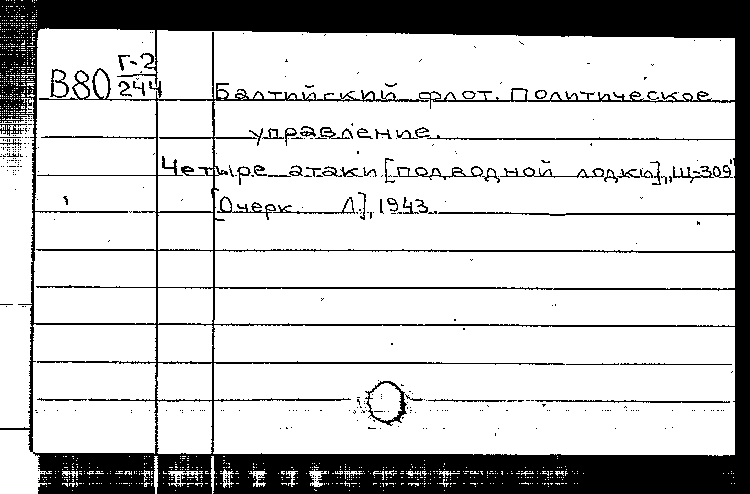 В80 Г-2
244
Балтийский флот. Политическое
управление.
Четыре атаки [подводной лодки] „Щ-309"
[Очерк. Л.], 1943.